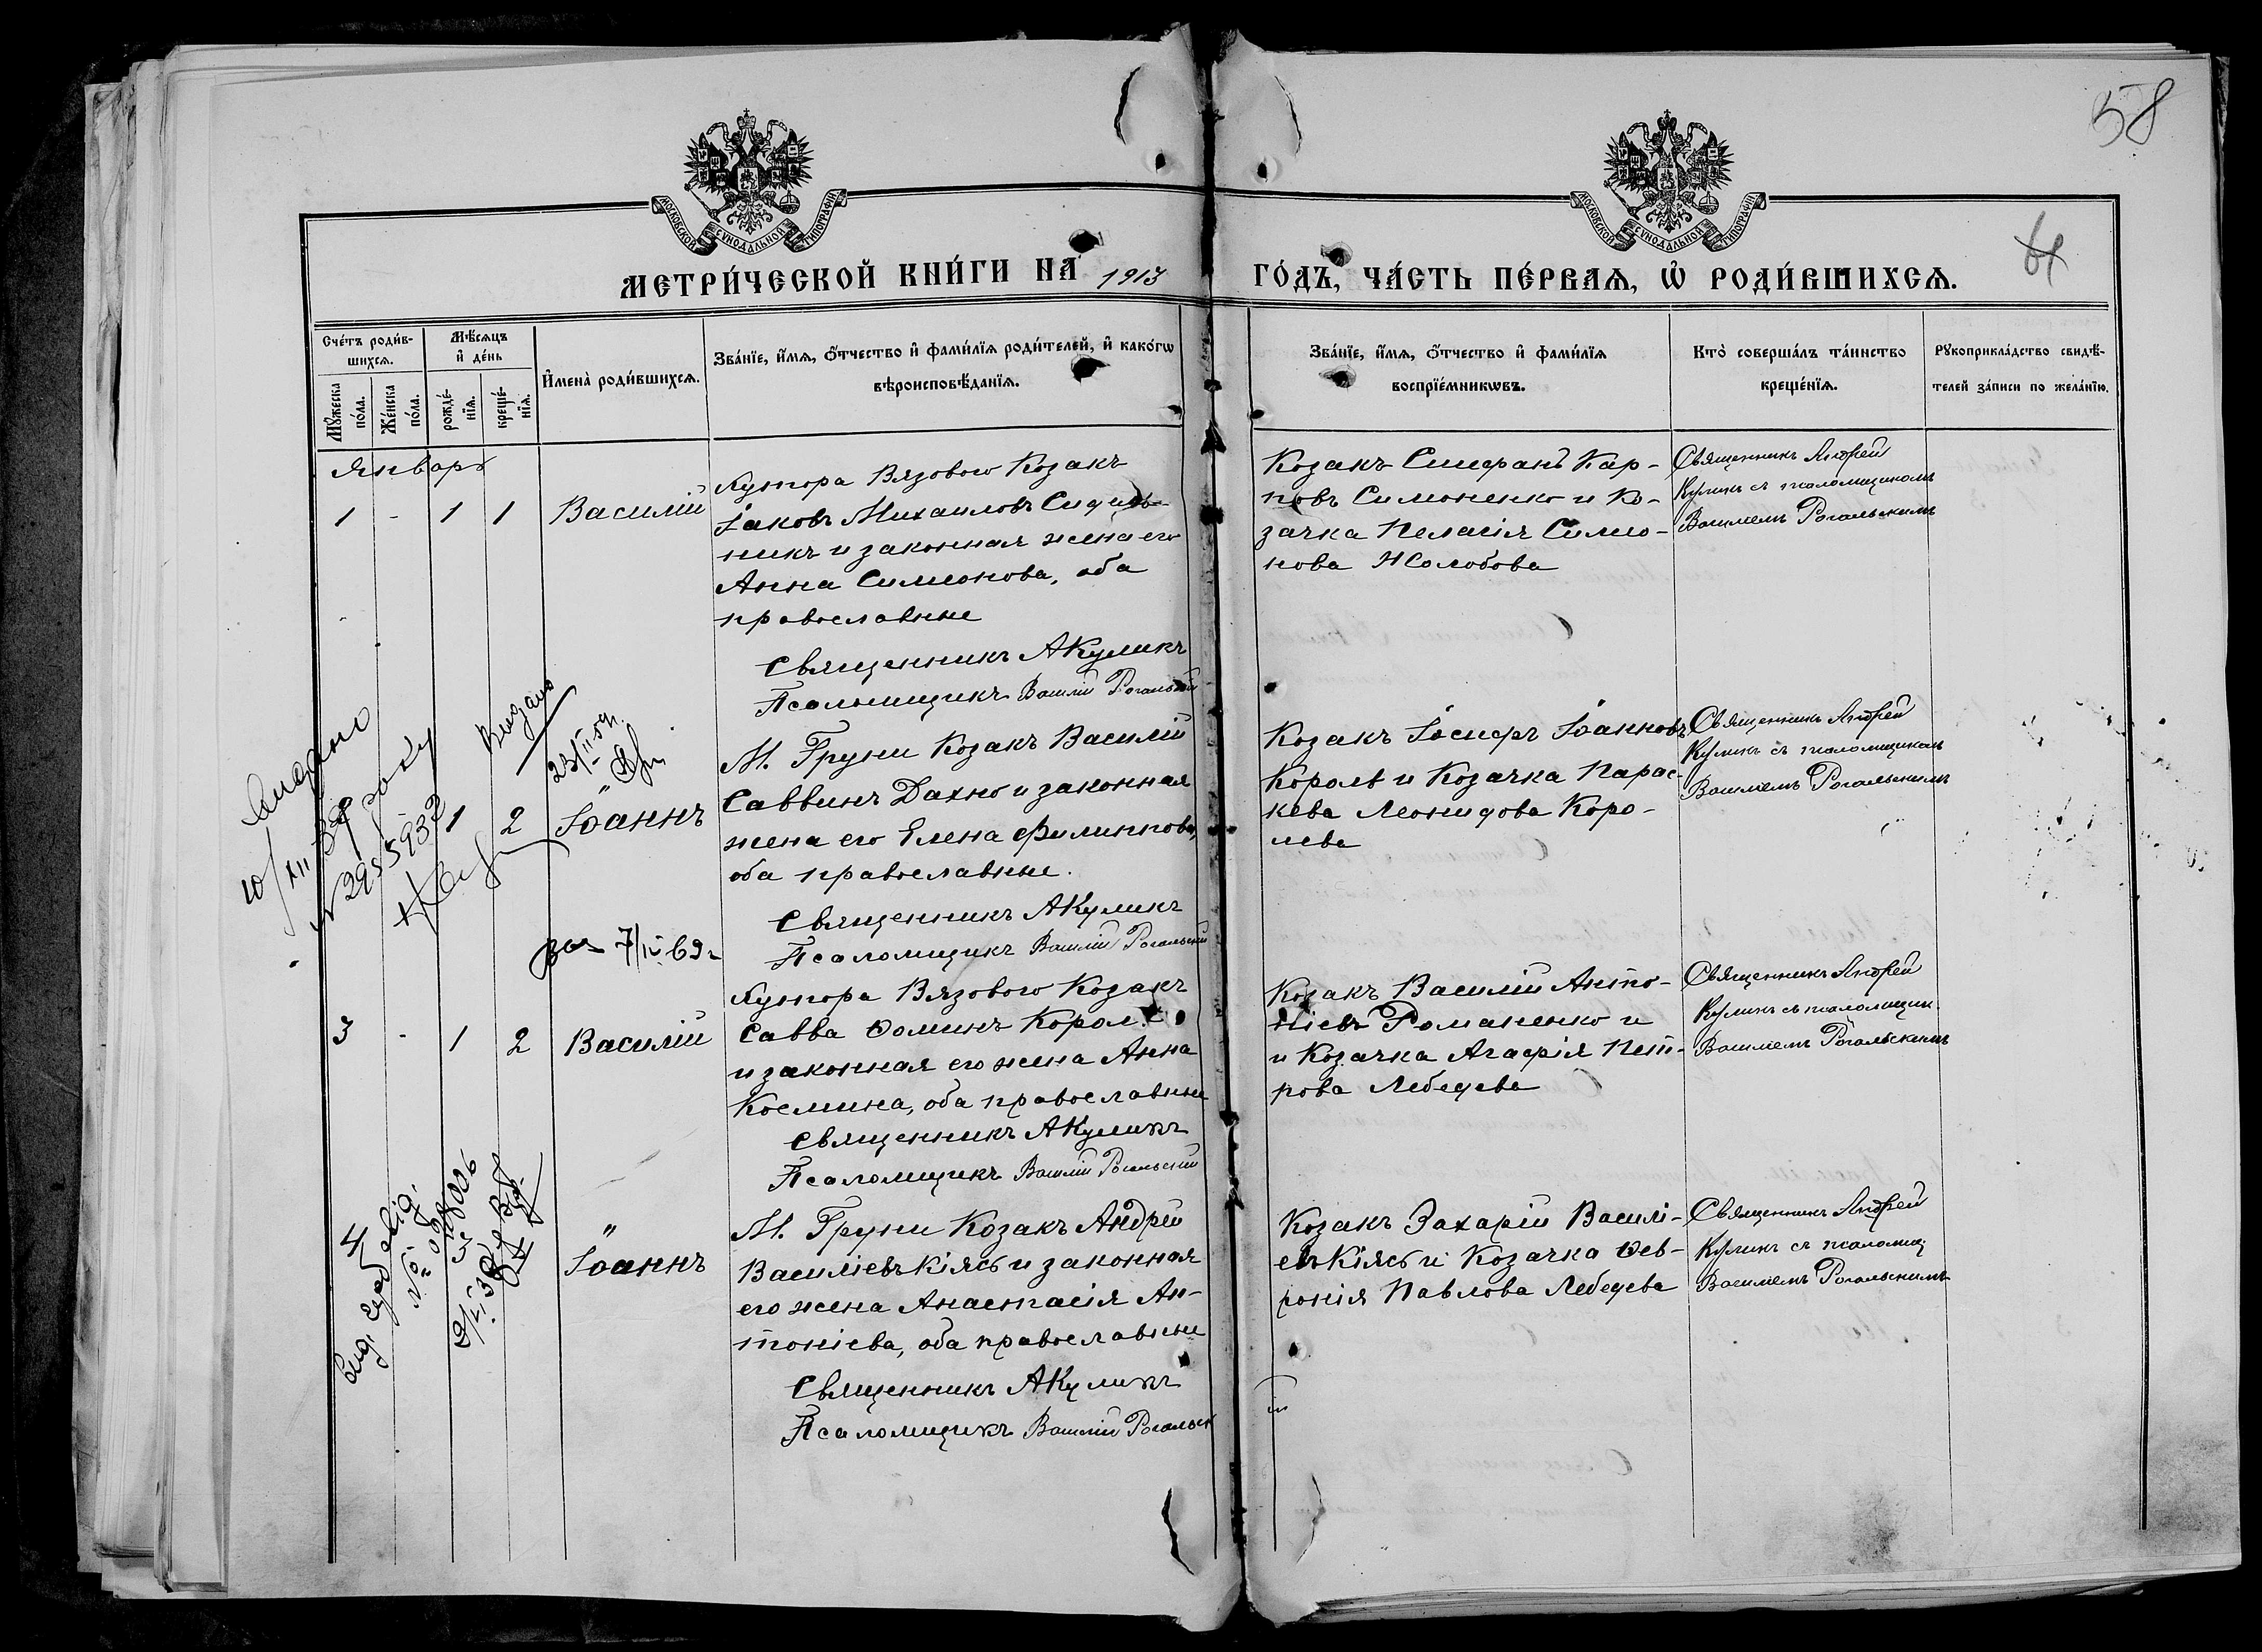 58
МОСКОВСКОЙ СѴНОДАЛЬНОЙ ТИПОГРАФІИ
МОСКОВСКОЙ СѴНОДАЛЬНОЙ ТИПОГРАФІИ
МЕТРИ́ЧЕСКОЙ КНИ́ГИ НА 1913
ГО́ДЪ, ЧА́СТЬ ПЕ́РВАЯ, Ѡ҆ РОДИ́ВШИХСЯ.
Сче́тъ роди́в-
шихся.
Мѣсяцъ
и҆ де́нь
Мꙋжеска
по́ла.
Же́нска
по́ла.
рожде́-
нїя.
креще́-
нїя.
И҆мена̀ роди́вшихся.
Зва́нїе, и҆́мя, ѻ҆́тчество и҆ фами́лїя роди́телей, и҆ како́гѡ
вѣроисповѣ́данїя.
Зва́нїе, и҆́мя, ѻ҆́тчество и҆ фами́лїя
воспрїе́мникѡвъ.
Кто̀ соверша́лъ та́инство
креще́нїя.
Рꙋкоприкла́дство свидѣ́-
телей за́писи по жела́нїю.
Январь
1 - 1 1 Василій
Хутора Вязового Козакъ
Іаковъ Михаиловъ
никъ и законная жена его
Анна Симонова, оба
православные
Священникъ АКуликъ
Псаломщикъ Василій Рогальскій
Козакъ Стефанъ Кар-
повъ Симоненко и Ко-
зачка Пелагія Симо-
нова Жолобова
Священникъ Андрей
Куликъ съ псаломщикомъ
Василіемъ Рогальскимъ
Видано
10/XII-39 року
№ 2955932
Выдано
23/II-50г.
1 2 Іоаннъ
М. Груни Козакъ Василій
Саввинъ Дахно и законная
жена его Елена Филиппова,
оба православные.
Священникъ АКуликъ
Псаломщикъ Василій Рогальскій
7/IV-69г
Козакъ Іосифъ Іоанновъ
Король и Козачка Парас-
кева Леонидова Коро-
лева
Священникъ Андрей
Куликъ съ псаломщикомъ
Василіемъ Рогальскимъ
3 - 1 2 Василій
Хутора Вязового Козакъ
Савва Ѳоминъ
и законная его жена Анна
Космина, оба православные
Священникъ АКуликъ
Псаломщикъ Василій Рогальскій
Козакъ Василій Анто-
ніевъ Романенко и
и Козачка Агафія Пет-
рова Лебедева
Священникъ Андрей
Куликъ съ псаломщик.
Василіемъ Рогальскимъ
4
Іоаннъ
М. Груни Козакъ Андрей
Василіевъ Кіясь и законная
его жена Анастасія Ан-
тоніева, оба православные
Священникъ АКуликъ
Псаломщикъ Василій Рогальск
Козакъ Захарій Василі-
евъ Кіясь и Козачка Ѳев-
ронія Павлова Лебедева
Священникъ Андрей
Куликъ съ псаломщ
Василіемъ Рогальскимъ